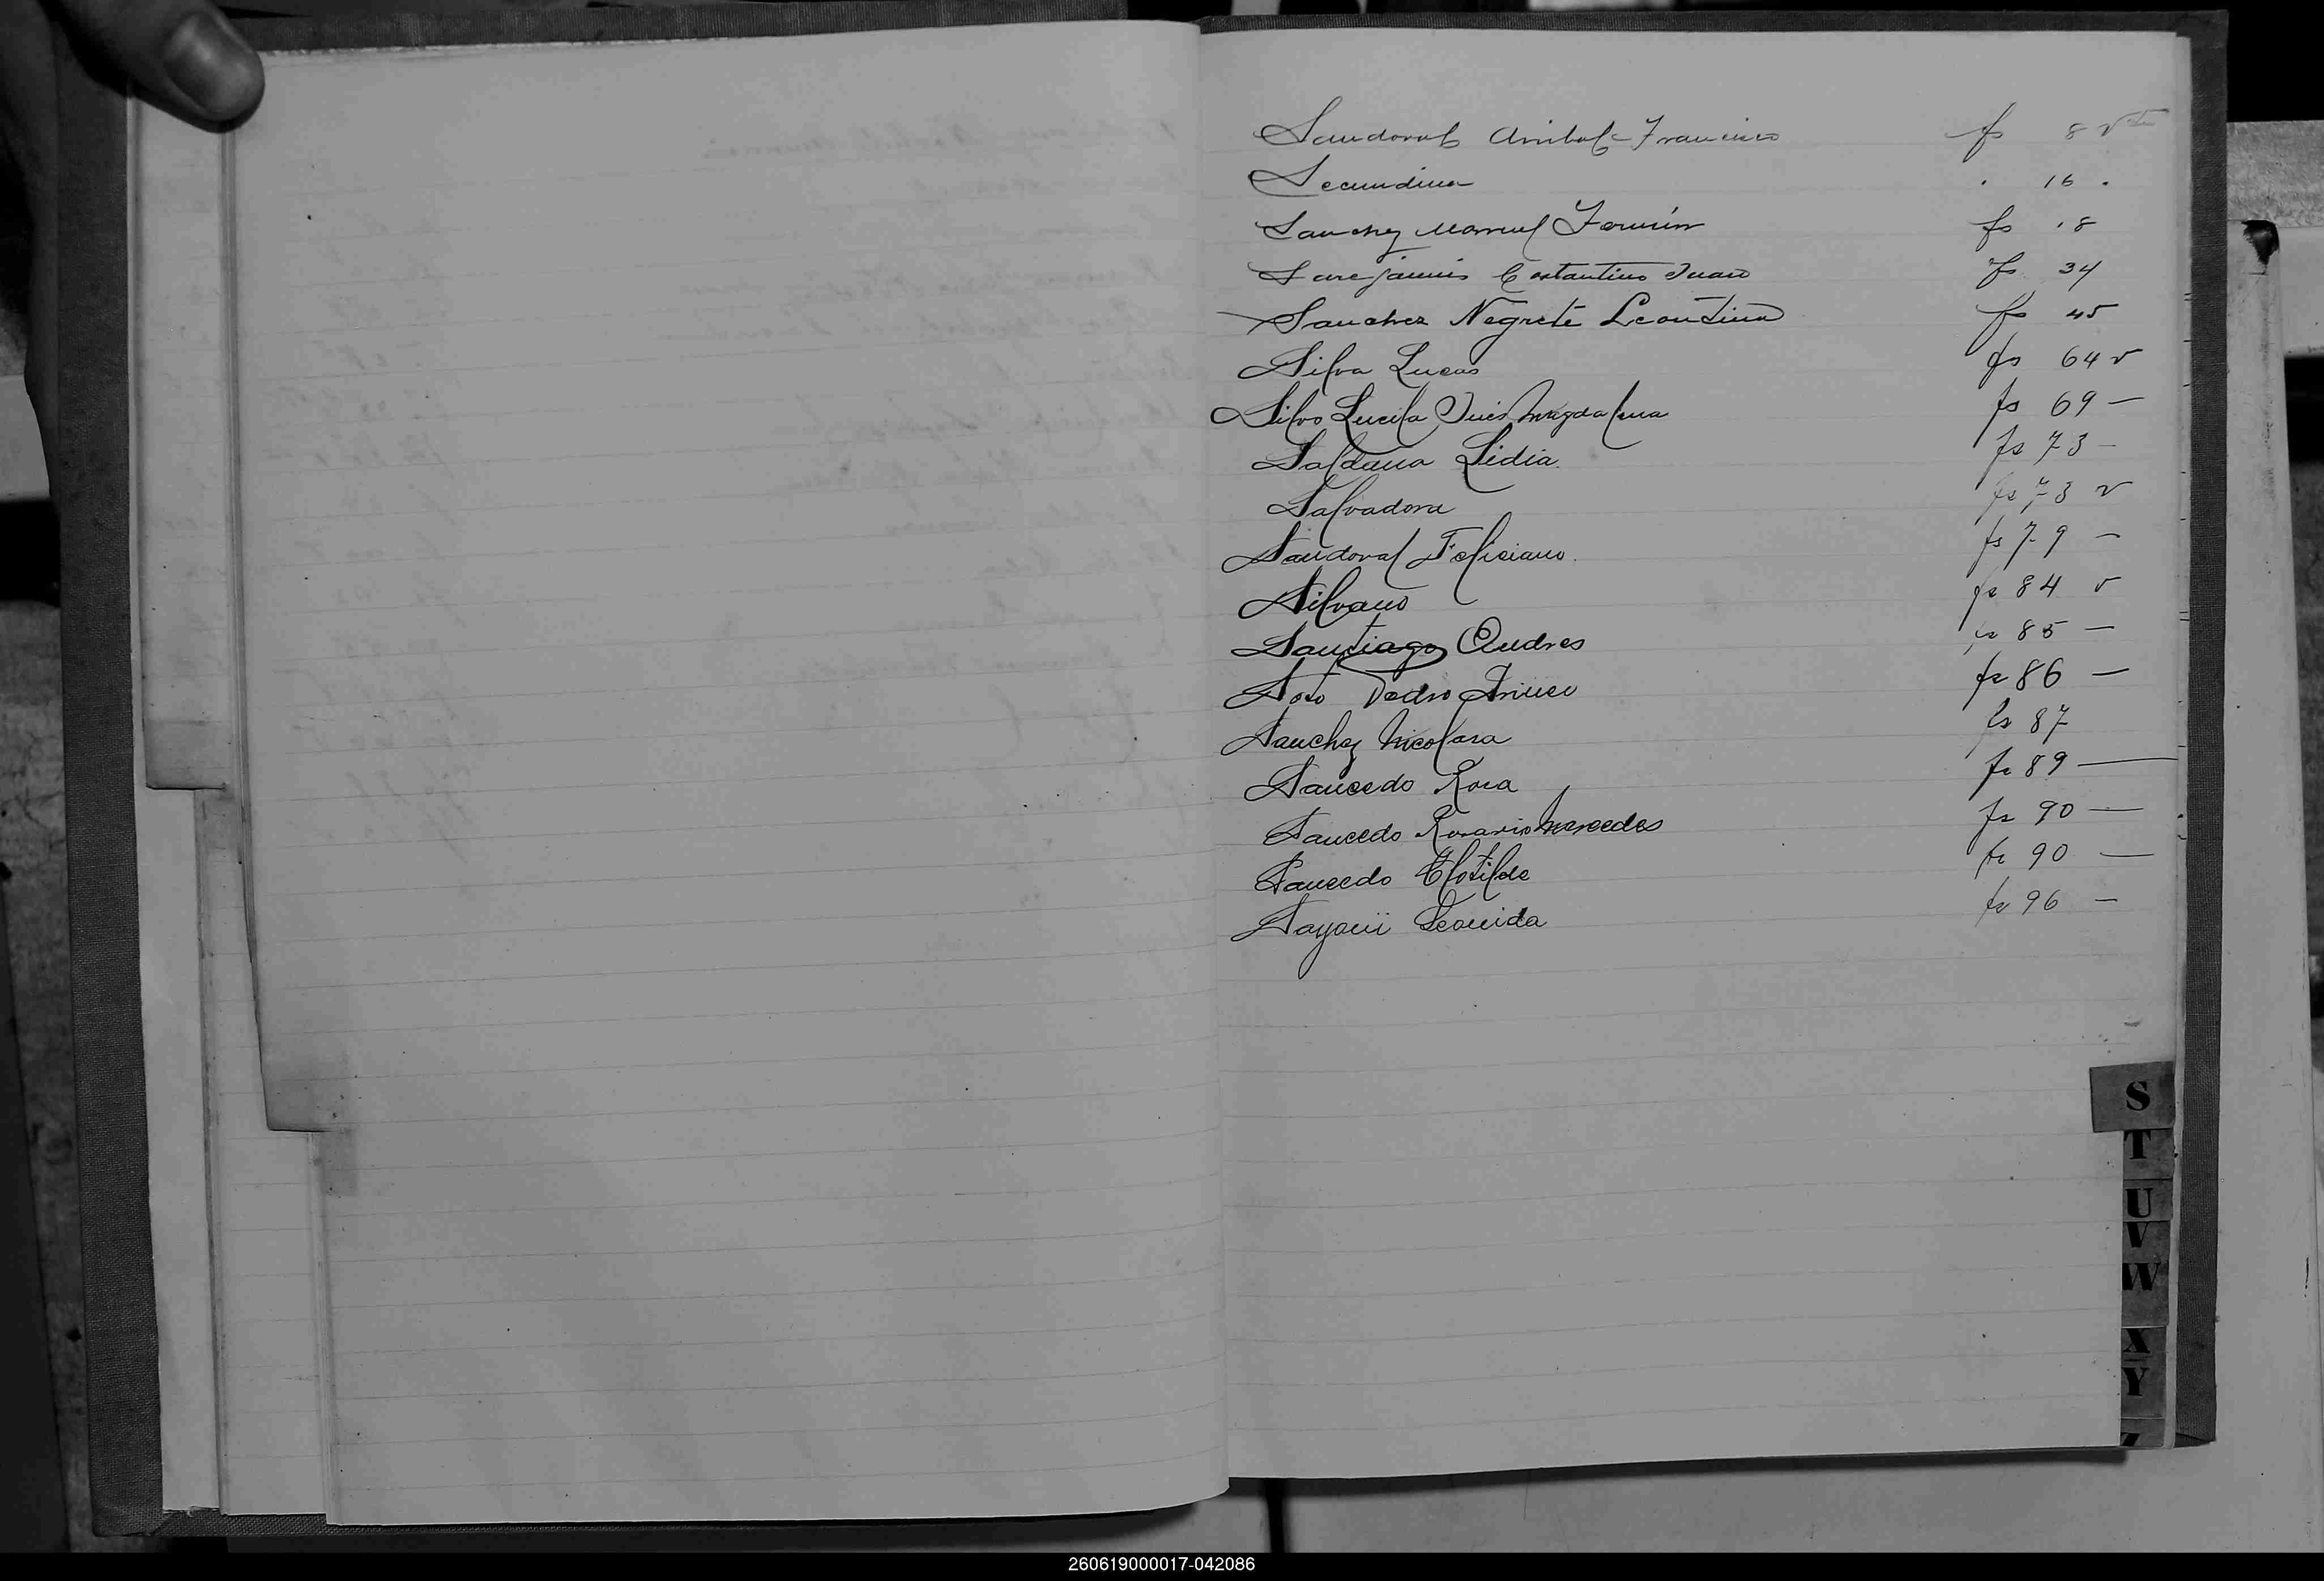 Sandoval Anibal Francisco fs 8 vta
Secundina . 16 .
Sanchez Manuel Fermín fs 18
Costantino Juan fs 34
Sanchez Negrete Leontina fs 45
Silva Lucas fs 64 v
Silva Lucila Inés Magdalena fs 69 —
Saldaña Lidia. fs 73 —
Salvadora fs 73 v
Sandoval Feliciano. fs 79 —
Silvano fs 84 v
Santiago Andres fs 85 —
Soto Pedro fs 86 —
Sanchez Nicolasa fs 87
Saucedo Rosa fs 89 —
Saucedo Rosario Mercedes fs 90 —
Saucedo Clotilde fs 90 —
Leonida fs 96 —
S
T
U
V
W
X
Y
Z
260619000017-042086